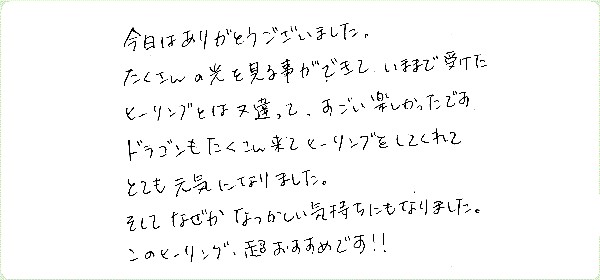 今日はありがとうございました。
たくさんの光を見る事ができて、いままで受けた
ヒーリングとは又違って、すごい楽しかったです
ドラゴンもたくさん来てヒーリングをしてくれて
とても元気になりました。
そしてなぜかなつかしい気持ちにもなりました。
このヒーリング、超おすすめです!!